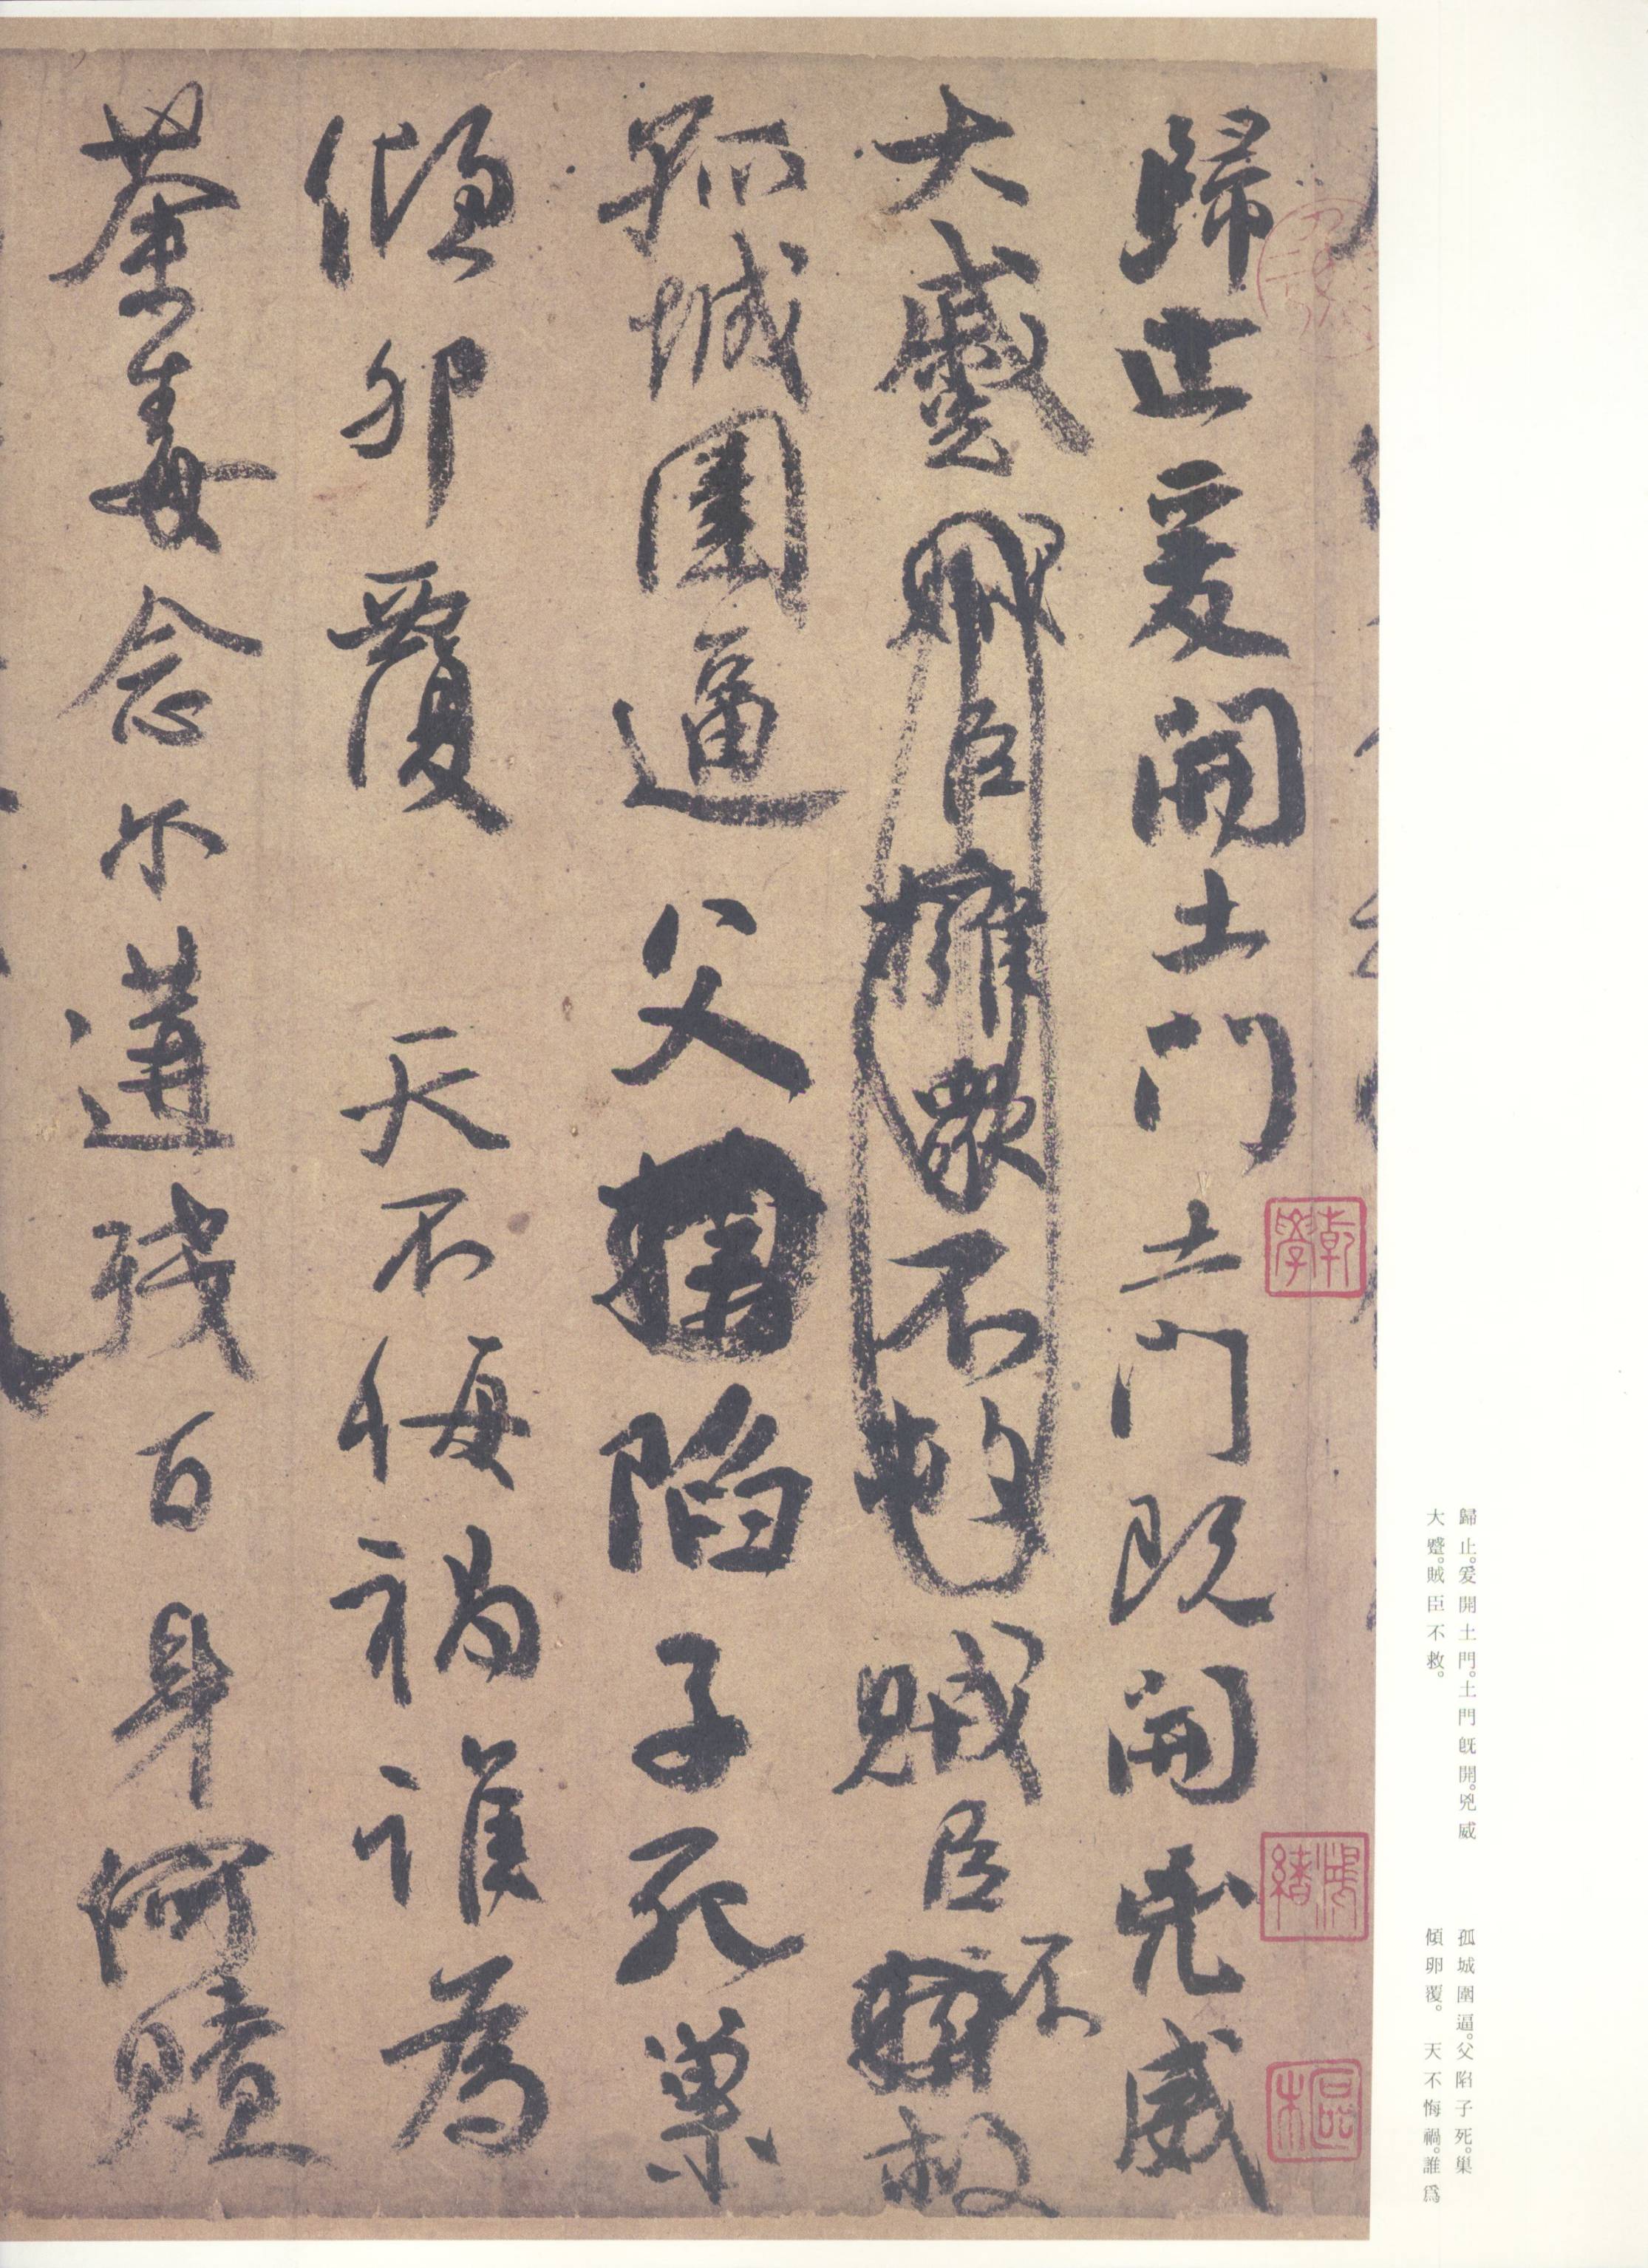 歸止爰開土門土門既開兇威
大蹙賊臣擁衆不救賊臣不救
孤城圍逼父陷子死巢
傾卵覆 天不悔禍誰為
荼毒念尔遘殘百身何贖
乾學
歸止。爰開土門。土門既開。兇威
大蹙。賊臣不救。
孤城圍逼。父陷子死。巢
傾卵覆。 天不悔禍。誰爲